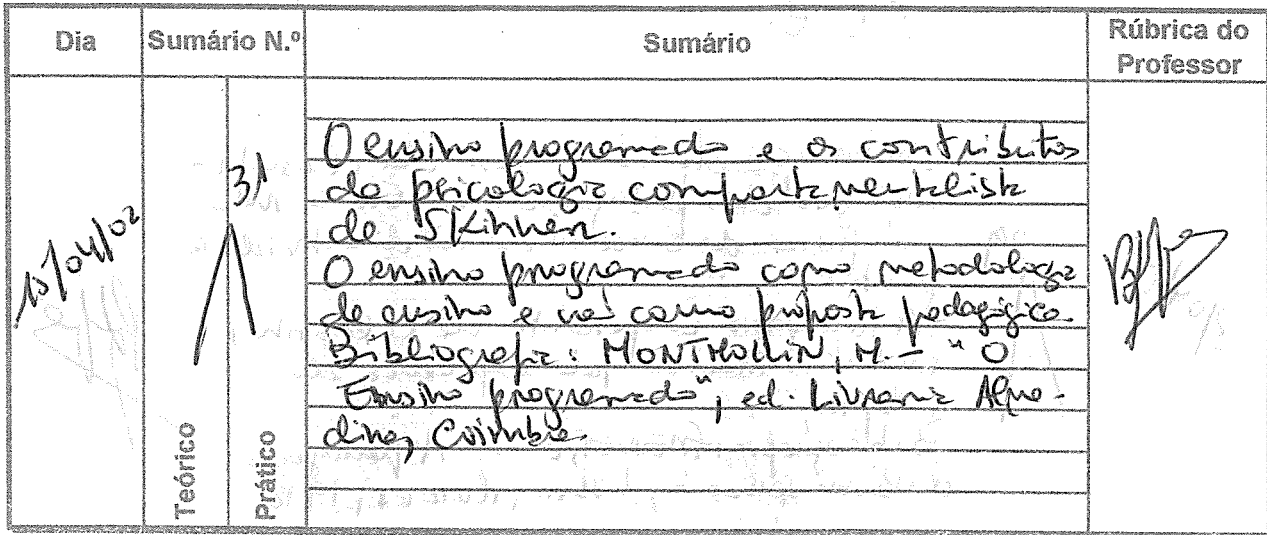 Dia
Sumário N.º
Sumário
Rúbrica do
Professor
15/04/02
31
O ensino programado e os contributos
da psicologia comportamentalista
de Skinner.
O ensino programado como metodologia
de ensino e não como proposta pedagógica.
Bibliografia: MONTMOLLIN, M. - "O
Ensino programado", ed. Livraria Alme-
dina, Coimbra.
Teórico
Prático